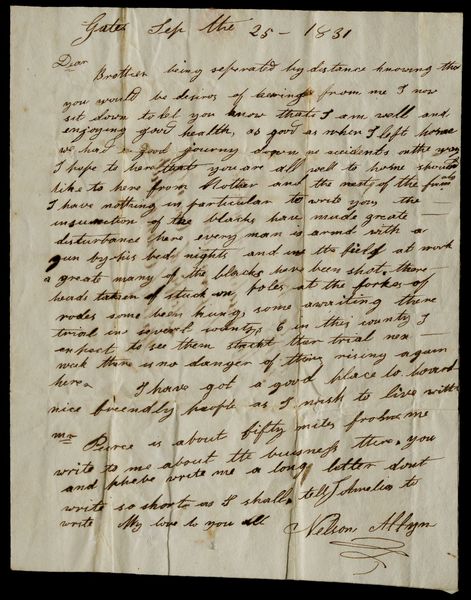 Gates Sep the 25 - 1831
Dear
Brother being seperated by distance knowing that
you would be desires of hearing from me I now
sit down to let you know that I am well and
enjoying good health, as good as when I left home
we had a good journy down no accidents on the way
I hope to here that you are all well to home should
like to here from Mother and the rest of the family
I have nothing in particular to write you, the
insurrection of the blacks have made great
disturbance here every man is armd with a
gun by his bed nights and in the field at work
a great many of the blacks have been shot there
heads taken of stuck on poles at the forkes of
rodes some been hung, some awaiting there
trial in several countys 6 in this county I
expect to see them strickt thar trial nex
week there is no danger of thire rising again
here. I have got a good place to board
nice freendly people as I wish to live with
mr Pierce is about fifty miles from me
write to me about the buisness there. you
and Phebe write me a long letter dont
write so short as I shall, tell Amelia to
write My love to you all
Nelson Allyn